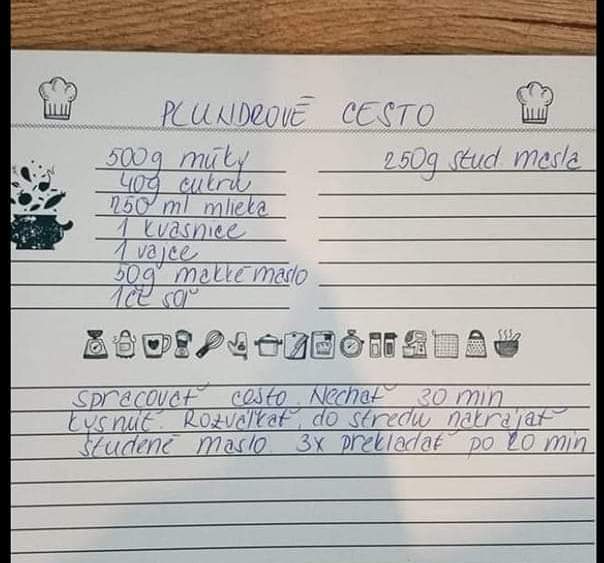 PLUNDROVÉ CESTO
500g múky
40g cukru
250 ml mlieka
1 kvasnice
1 vajce
50g mäkké maslo
1čl soľ
250g stud. masla
Spracovať cesto. Nechať 30 min
kysnúť. Rozválkať, do stredu nakrájať
studené maslo. 3x prekladať po 20 min